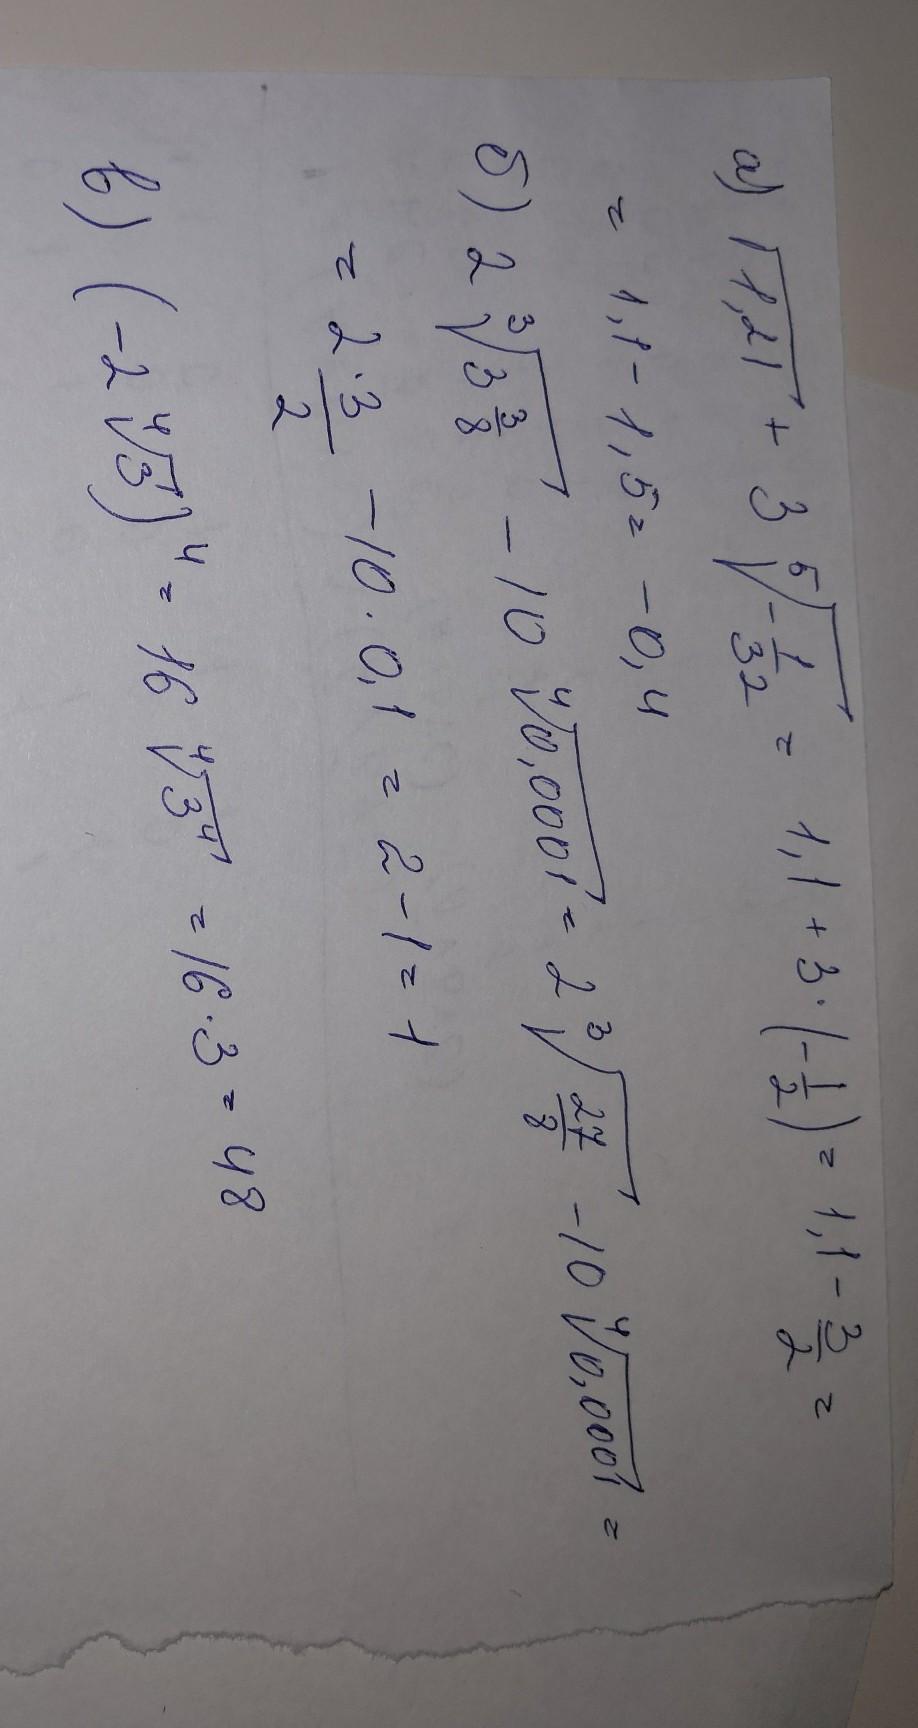 а) √1,21 + 3 ⁵√(-1/32) = 1,1 + 3·(-1/2) = 1,1 - 3/2 =
= 1,1 - 1,5 = -0,4
б) 2 ³√(3 3/8) - 10 ⁴√0,0001 = 2 ³√(27/8) - 10 ⁴√0,0001 =
= 2·3/2 - 10·0,1 = 2 - 1 = 1
в) (-2 ⁴√3)⁴ = 16 ⁴√3⁴ = 16·3 = 48